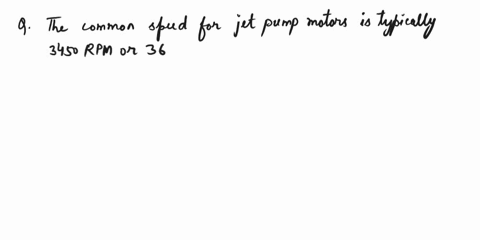 Q. The common speed for jet pump motors is typically
3450 RPM or 36